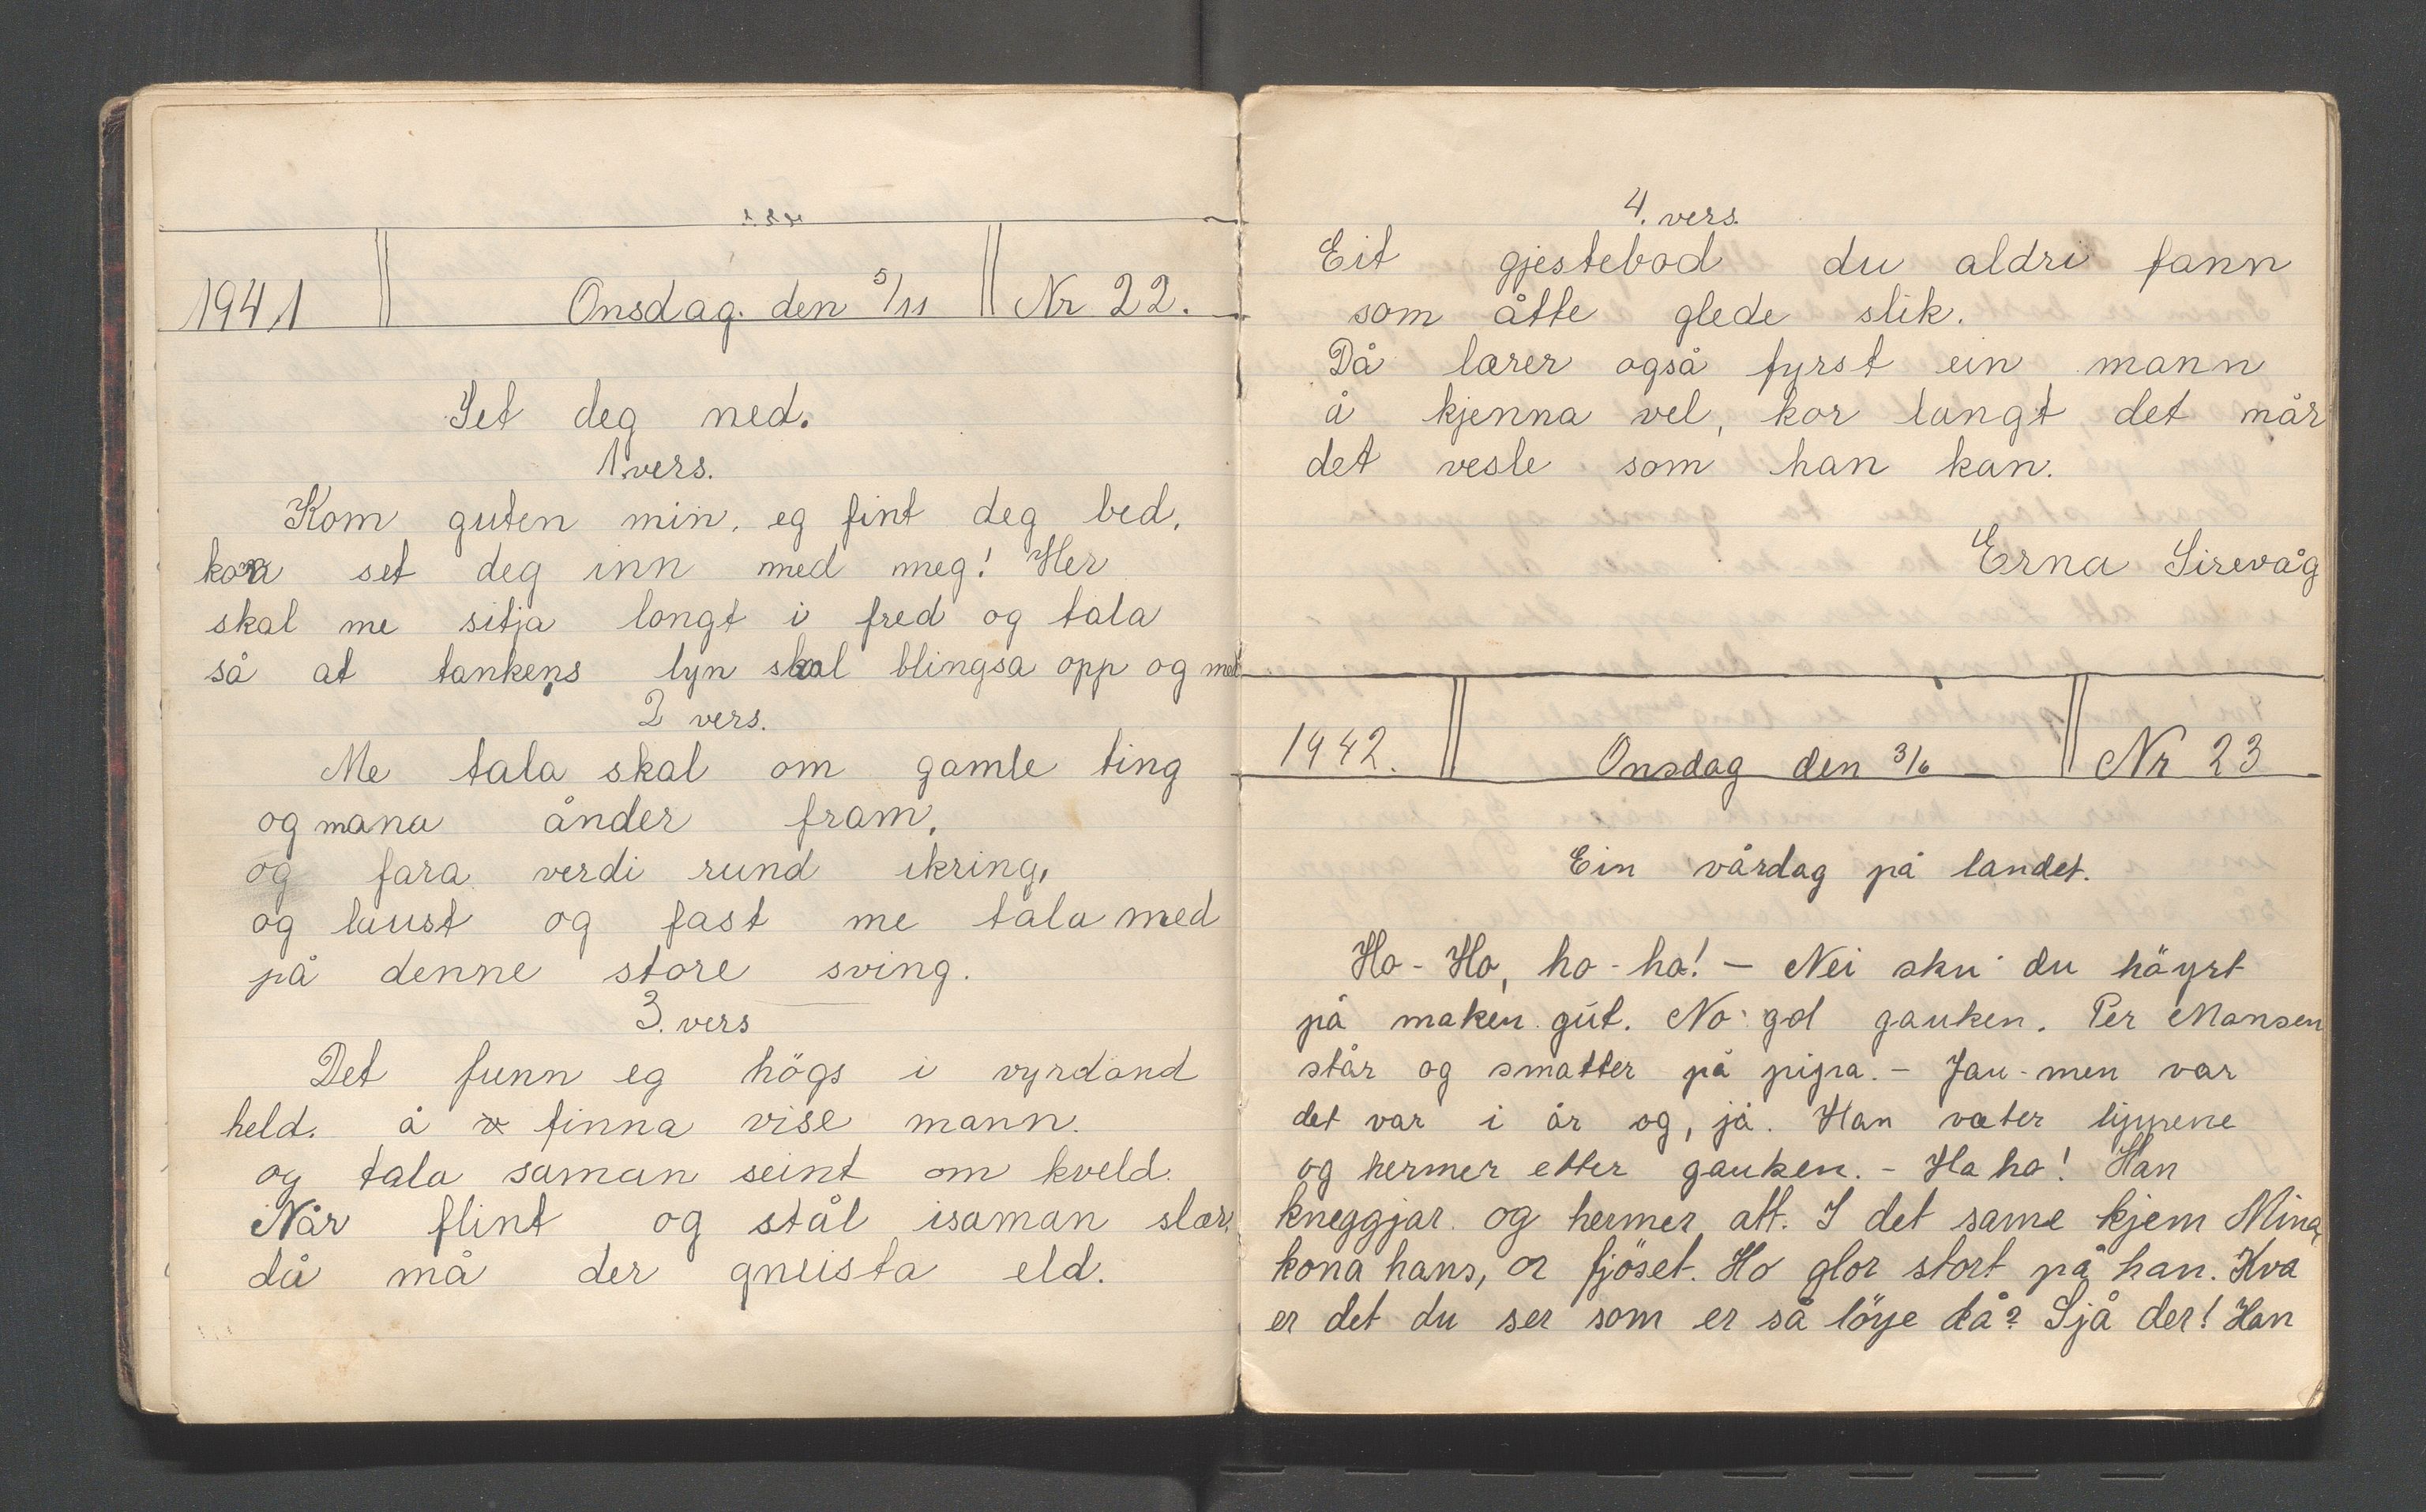 1941 Onsdag. den 5/11 Nr 22.
Set deg ned.
1. vers.
Kom guten min, eg fint deg bed,
kom set deg inn med meg! Her
skal me sitja longt i fred og tala
så at tankens lyn skal blingsa opp og med
2 vers.
Me tala skal om gamle ting
og mana ånder fram,
og fara verdi rund ikring,
og laust og fast me tala med
på denne store sving.
3. vers
Det funn eg högs i vyrdand
held. å finna vise mann.
og tala saman seint om kveld.
Når flint og stål isaman slær,
då må der gneista eld.
4. vers.
Eit gjestebod du aldri fann
som åtte glede slik.
Då lærer også fyrst ein mann
å kjenna vel, kor langt det når
det vesle som han kan.
Erna Sirevåg
1942. Onsdag den 3/6 Nr 23
Ein vårdag på landet.
Ho-Ho, ho-ho! - Nei sku du höyrt
på maken gut. No gol gauken. Per Monsen
står og smatter på pipa. - Jau-men var
det var i år og, ja. Han væter lippene
og hermer etter gauken. - Ha ha! Han
kneggjar og hermer att. I det same kjem Mina,
kona hans, or fjöset. Ho glor stort på han. Kva
er det du ser som er så löye då? Sjå der! Han